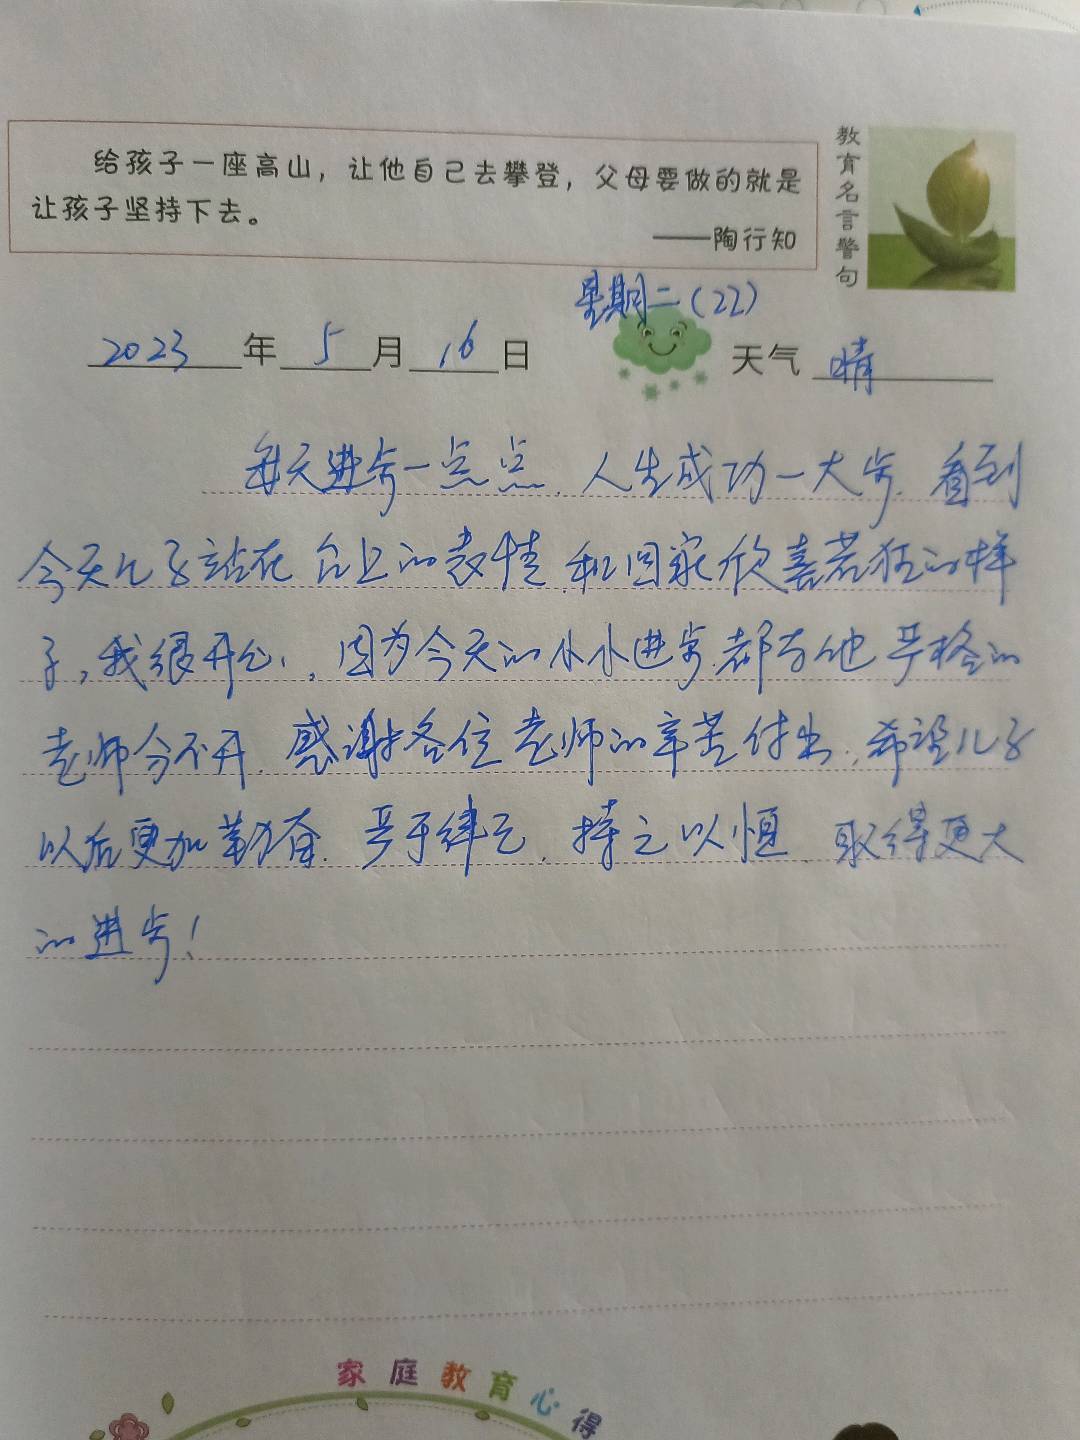 给孩子一座高山，让他自己去攀登，父母要做的就是
让孩子坚持下去。
——陶行知
教育名言警句
星期二（22）
2023年5月16日 天气 晴
每天进步一点点，人生成功一大步，看到
今天儿子站在台上的表情，和回家欣喜若狂的样
子，我很开心，因为今天的小小进步都与他严格的
老师分不开，感谢各位老师的辛苦付出，希望儿子
以后更加勤奋，严于律己，持之以恒，取得更大
的进步！
家庭教育心得